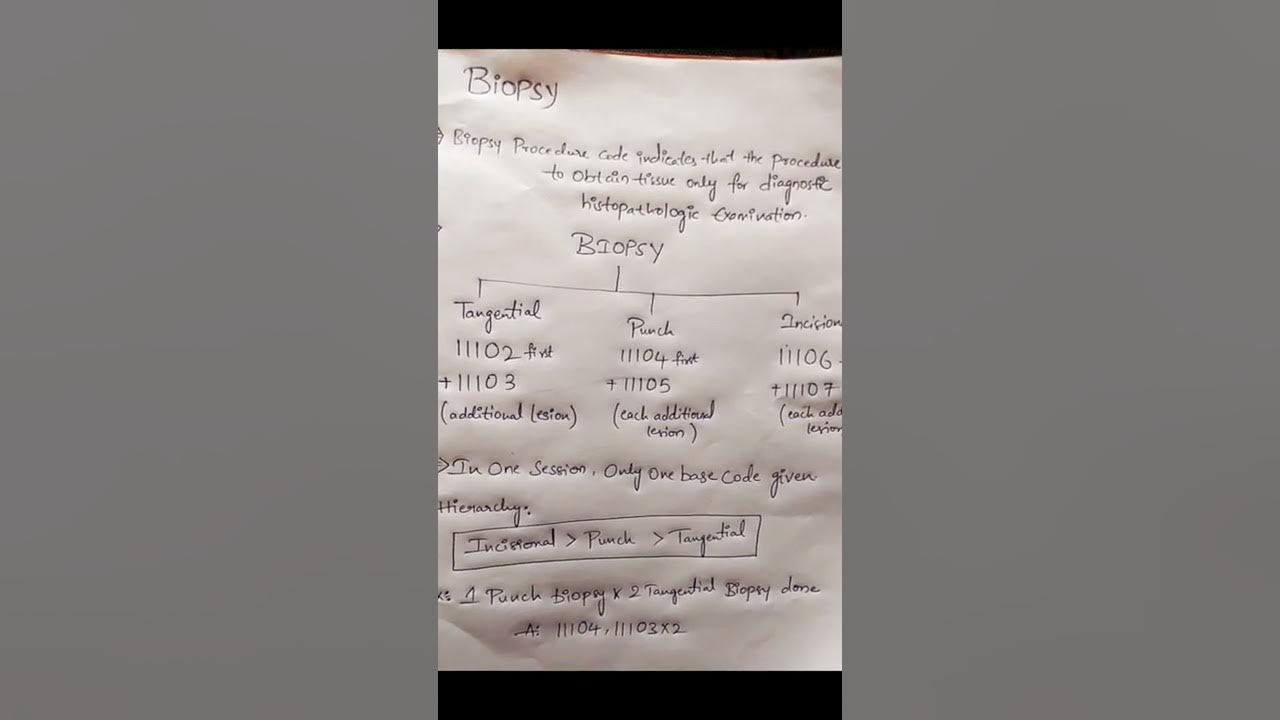 Biopsy
Biopsy Procedure code indicates that the procedure
to obtain tissue only for diagnostic
histopathologic Examination.
BIOPSY
Tangential Punch Incision
11102 first 11104 first 11106
+11103 +11105 +11107
(additional lesion) (each additional (each add
lesion) lesion
In One Session, Only one base code given
Hierarchy:
Incisional > Punch > Tangential
x: 1 Punch biopsy x 2 Tangential Biopsy done
A: 11104, 11103x2